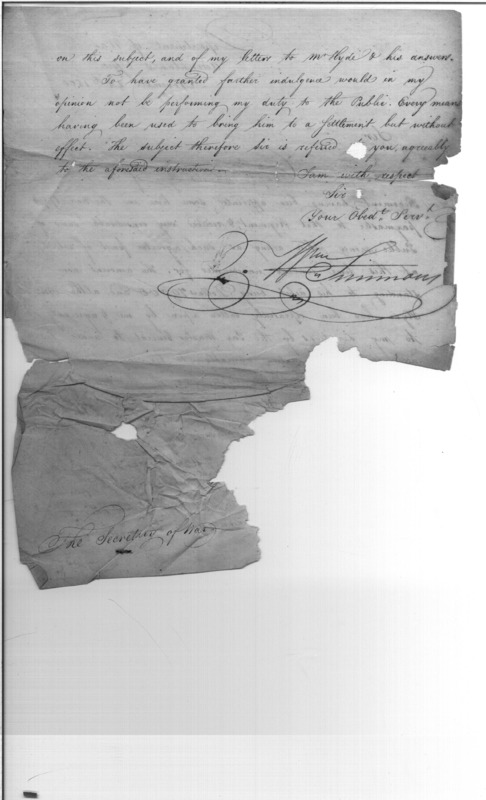 on this subject, and of my letters to Mr Hyde & his answers.
To have granted farther indulgence would in my
opinion not be performing my duty to the Public. Every means
having been used to bring him to a settlement but without
effect. The subject therefore Sir is referred you, agreeably
to the aforesaid instruction.
I am with respect
Sir
Your Obedt. Servt.
Wm Simmons
The Secretary of War